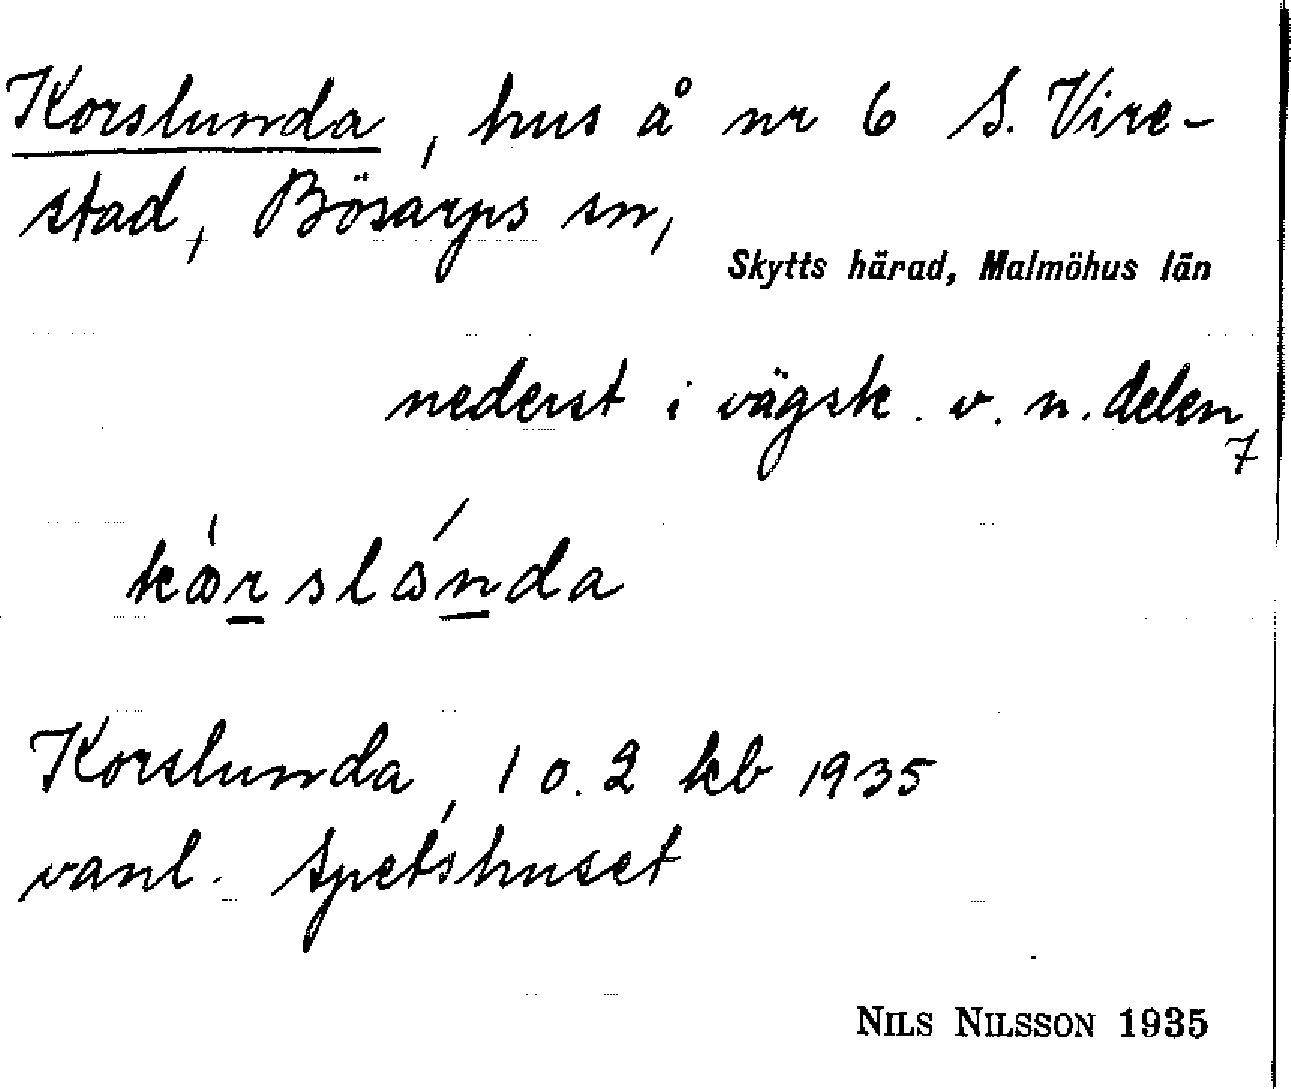 Korslunda, hus å nr 6 S. Vire-
stad, Bösarps sn,
Skytts härad, Malmöhus län
nederst i vägsk. v. n. delen
7
kórslánda
Korslunda, 1 o. 2 kb 1935
vanl. Spetshuset
NILS NILSSON 1935